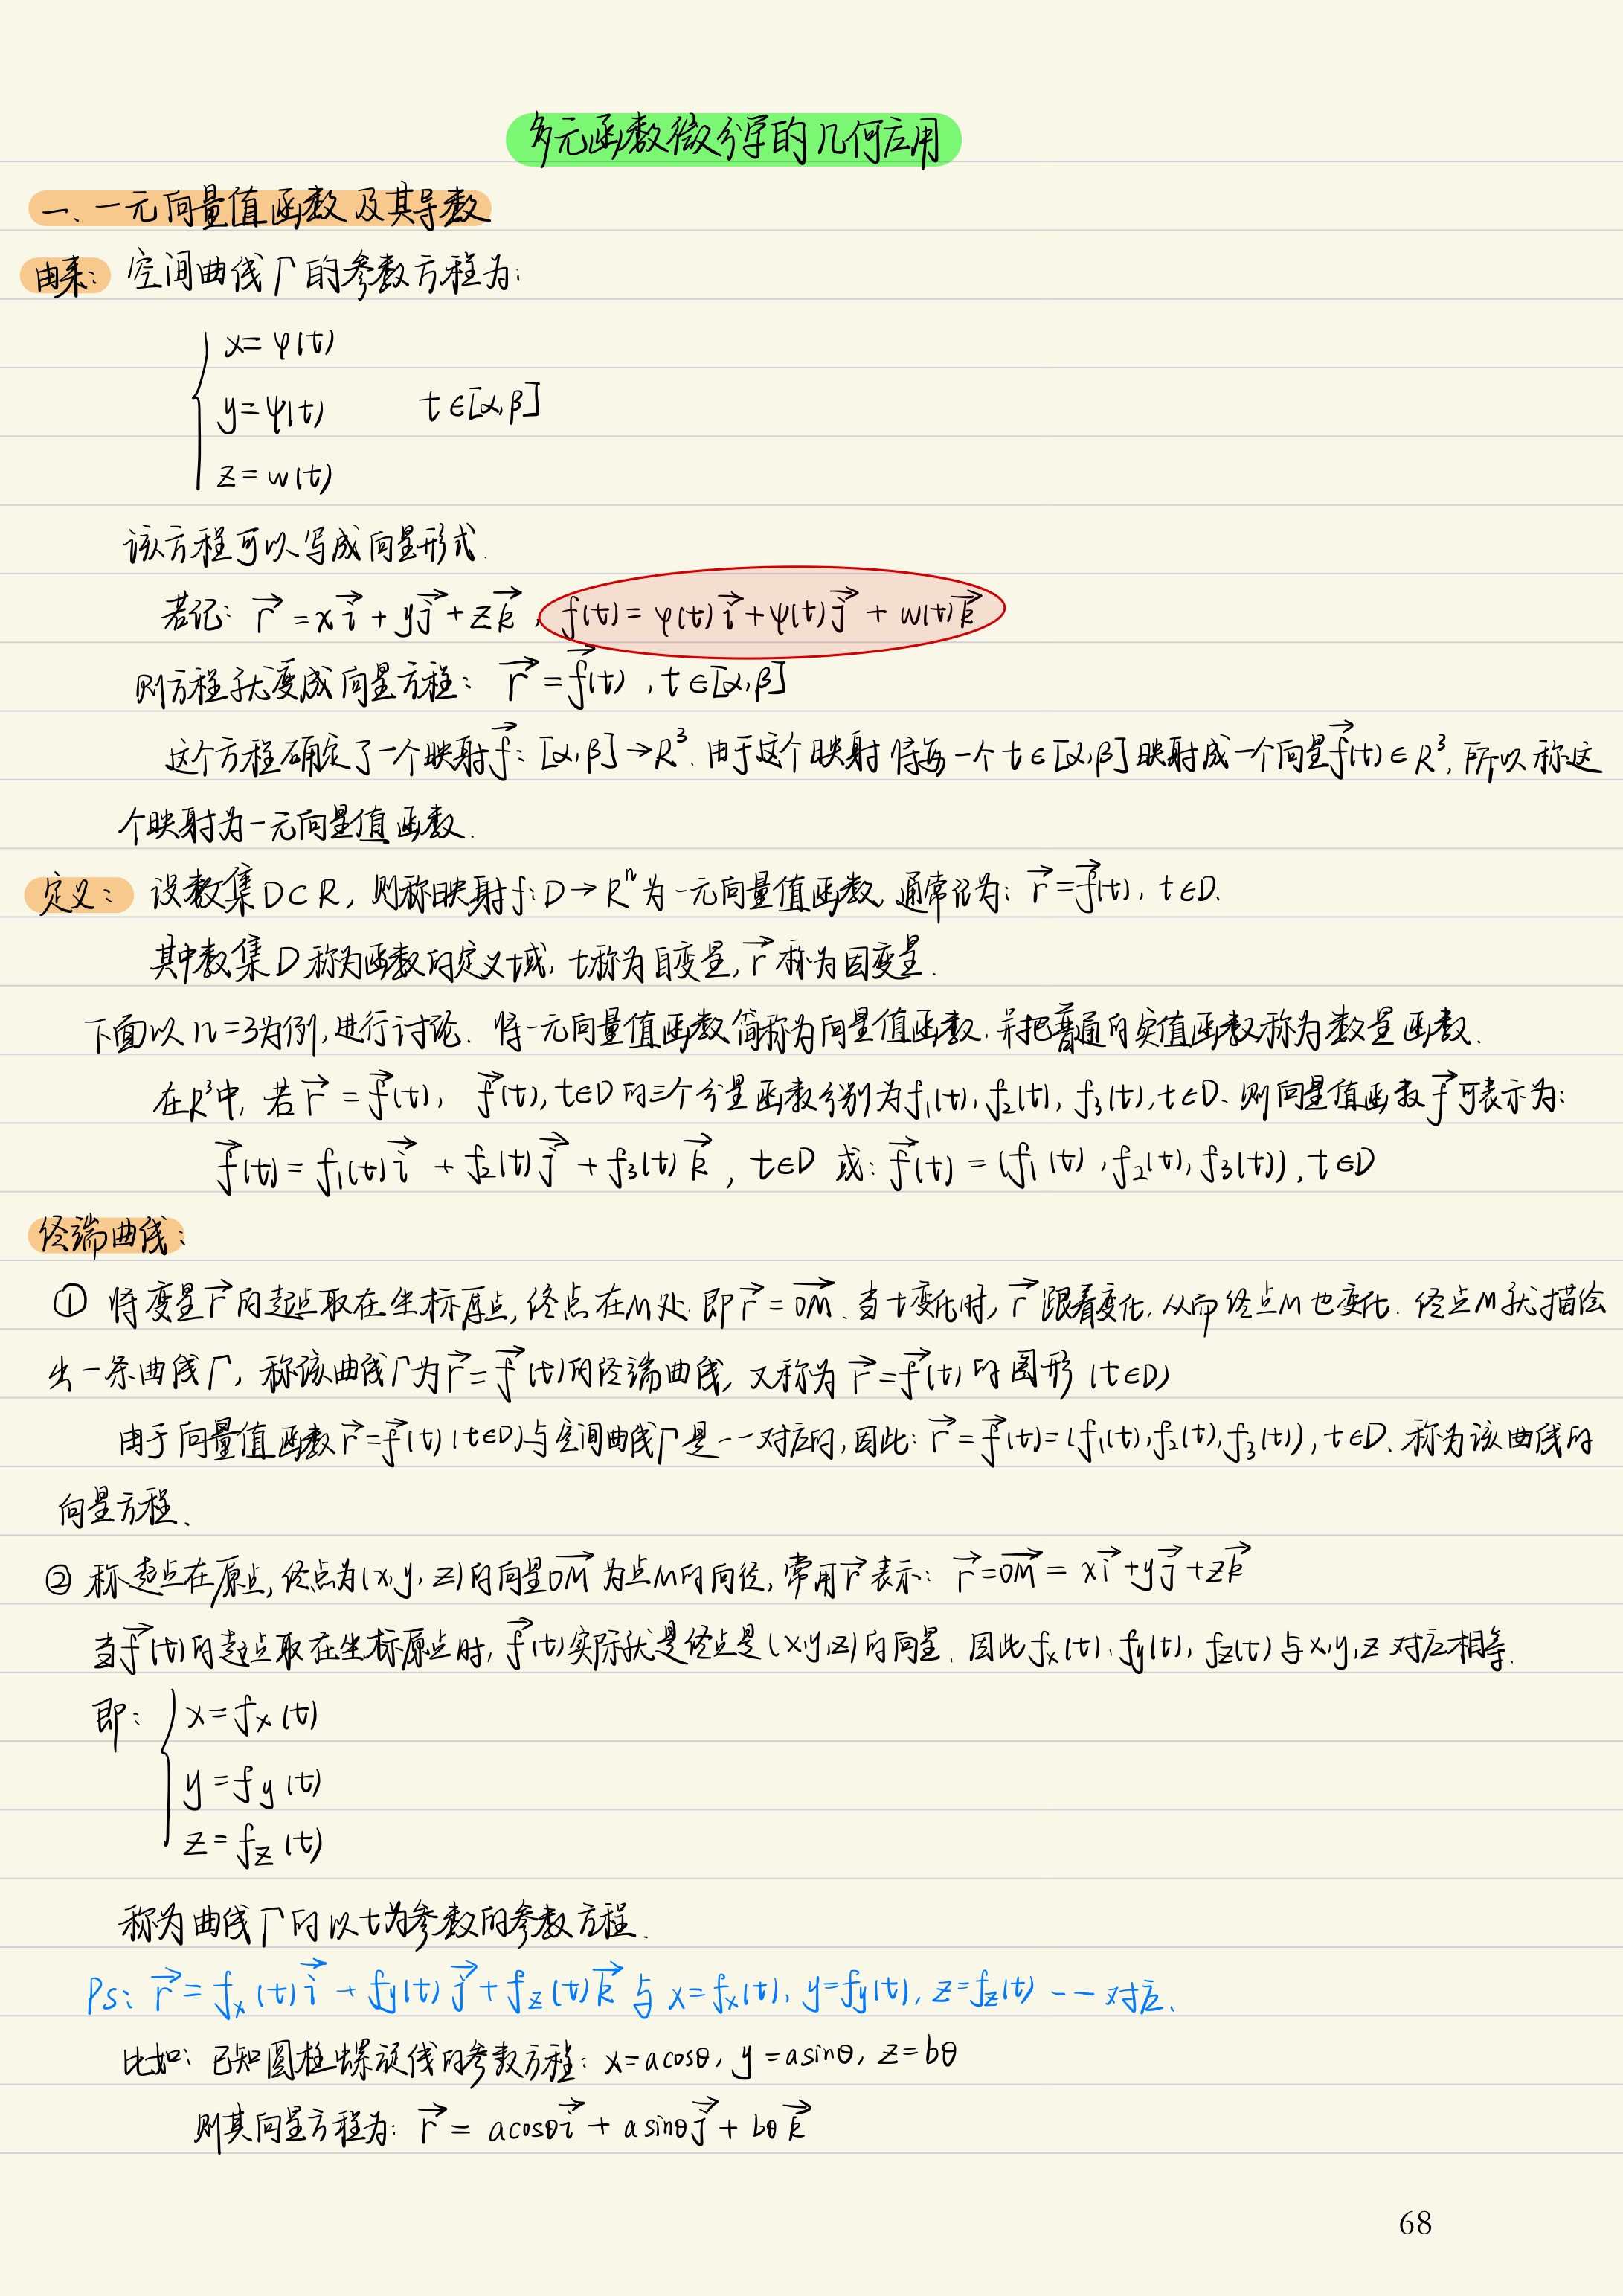 多元函数微分学的几何应用
一、一元向量值函数及其导数
由来: 空间曲线Γ的参数方程为:
x=φ(t)
y=ψ(t) t∈[α,β]
z=w(t)
该方程可以写成向量形式.
若记: r⃗=xi⃗+yj⃗+zk⃗, f(t)=φ(t)i⃗+ψ(t)j⃗+w(t)k⃗
则方程就变成向量方程: r⃗=f⃗(t), t∈[α,β]
这个方程确定了一个映射f⃗: [α,β]→R³. 由于这个映射将每一个t∈[α,β]映射成一个向量f⃗(t)∈R³, 所以称这
个映射为一元向量值函数.
定义: 设数集D⊂R, 则称映射f: D→Rⁿ为一元向量值函数, 通常记为: r⃗=f⃗(t), t∈D.
其中数集D称为函数的定义域, t称为自变量, r⃗称为因变量.
下面以n=3为例, 进行讨论. 将一元向量值函数简称为向量值函数. 并把普通的实值函数称为数量函数.
在R³中, 若r⃗=f⃗(t), f⃗(t), t∈D的三个分量函数分别为f₁(t), f₂(t), f₃(t), t∈D、则向量值函数f⃗可表示为:
f⃗(t)=f₁(t)i⃗+f₂(t)j⃗+f₃(t)k⃗, t∈D 或: f⃗(t)=(f₁(t), f₂(t), f₃(t)), t∈D
终端曲线:
① 将变量r⃗的起点取在坐标原点, 终点在M处. 即r⃗=OM⃗. 当t变化时, r⃗跟着变化, 从而终点M也变化. 终点M就描绘
出一条曲线Γ, 称该曲线Γ为r⃗=f⃗(t)的终端曲线, 又称为r⃗=f⃗(t)的图形 (t∈D)
由于向量值函数r⃗=f⃗(t)(t∈D)与空间曲线Γ是一一对应的, 因此: r⃗=f⃗(t)=(f₁(t), f₂(t), f₃(t)), t∈D、称为该曲线的
向量方程、
② 称起点在原点, 终点为(x, y, z)的向量OM⃗为点M的向径, 常用r⃗表示: r⃗=OM⃗=xi⃗+yj⃗+zk⃗
当f⃗(t)的起点取在坐标原点时, f⃗(t)实际就是终点是(x,y,z)的向量. 因此f_x(t), f_y(t), f_z(t)与x,y,z对应相等.
即: x=f_x(t)
y=f_y(t)
z=f_z(t)
称为曲线Γ的以t为参数的参数方程.
Ps: r⃗=f_x(t)i⃗+f_y(t)j⃗+f_z(t)k⃗与x=f_x(t), y=f_y(t), z=f_z(t)一一对应、
比如: 已知圆柱螺旋线的参数方程: x=acosθ, y=asinθ, z=bθ
则其向量方程为: r⃗=acosθi⃗+asinθj⃗+bθk⃗
68